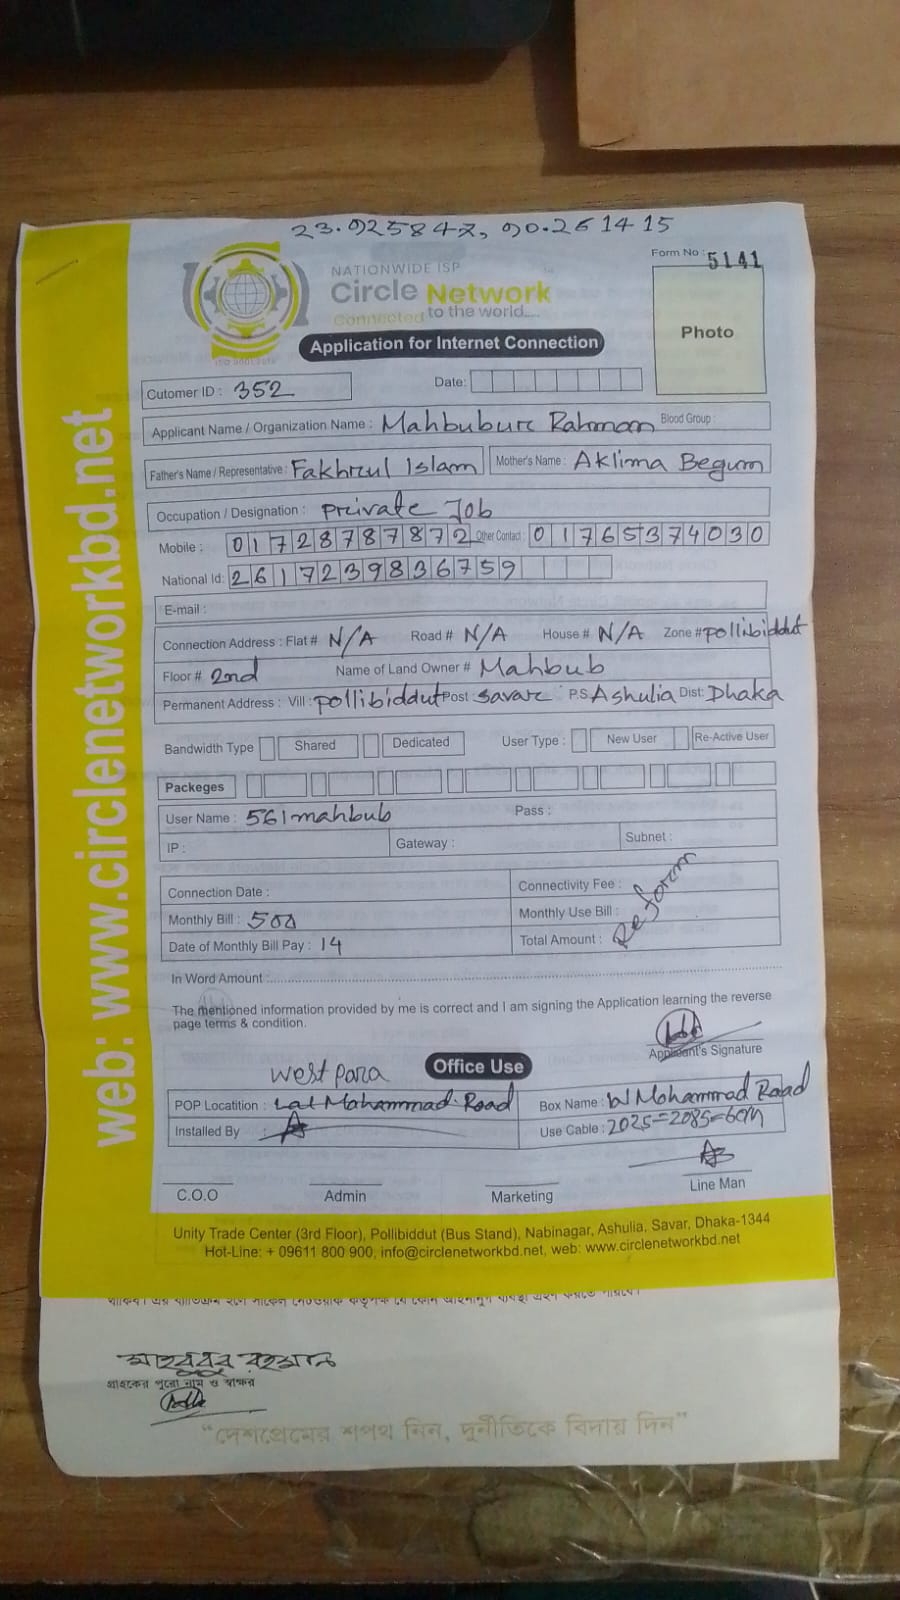 23.925847, 90.261415
Form No : 5141
NATIONWIDE ISP
Circle Network
Connected to the world....
ISO 9001:2015
Photo
Application for Internet Connection
Cutomer ID : 352 Date:
Applicant Name / Organization Name : Mahbubur Rahman Blood Group :
Father's Name / Representative : Fakhrul Islam Mother's Name : Aklima Begum
Occupation / Designation : private Job
Mobile : 01728787872 Other Contact : 01765374030
National Id: 2617239836759
E-mail :
Connection Address : Flat # N/A Road # N/A House # N/A Zone # pollibiddut
Floor # 2nd Name of Land Owner # Mahbub
Permanent Address : Vill : pollibiddut Post : Savar P.S Ashulia Dist: Dhaka
Bandwidth Type Shared Dedicated User Type : New User Re-Active User
Packeges
User Name : 561mahbub Pass :
IP : Gateway : Subnet :
Connection Date : Connectivity Fee :
Monthly Bill : 500 Monthly Use Bill :
Date of Monthly Bill Pay : 14 Total Amount :
Reform
In Word Amount :
The mentioned information provided by me is correct and I am signing the Application learning the reverse
page terms & condition.
Applicant's Signature
Office Use
West para
POP Locatition : Lal Mohammad Road Box Name : W Mohammad Road
Installed By : Use Cable : 2025-2085=60m
C.O.O Admin Marketing Line Man
Unity Trade Center (3rd Floor), Pollibiddut (Bus Stand), Nabinagar, Ashulia, Savar, Dhaka-1344
Hot-Line: + 09611 800 900, info@circlenetworkbd.net, web: www.circlenetworkbd.net
web: www.circlenetworkbd.net
মাহবুবুর রহমান
গ্রাহকের পুরো নাম ও স্বাক্ষর
“দেশপ্রেমের শপথ নিন, দুর্নীতিকে বিদায় দিন”